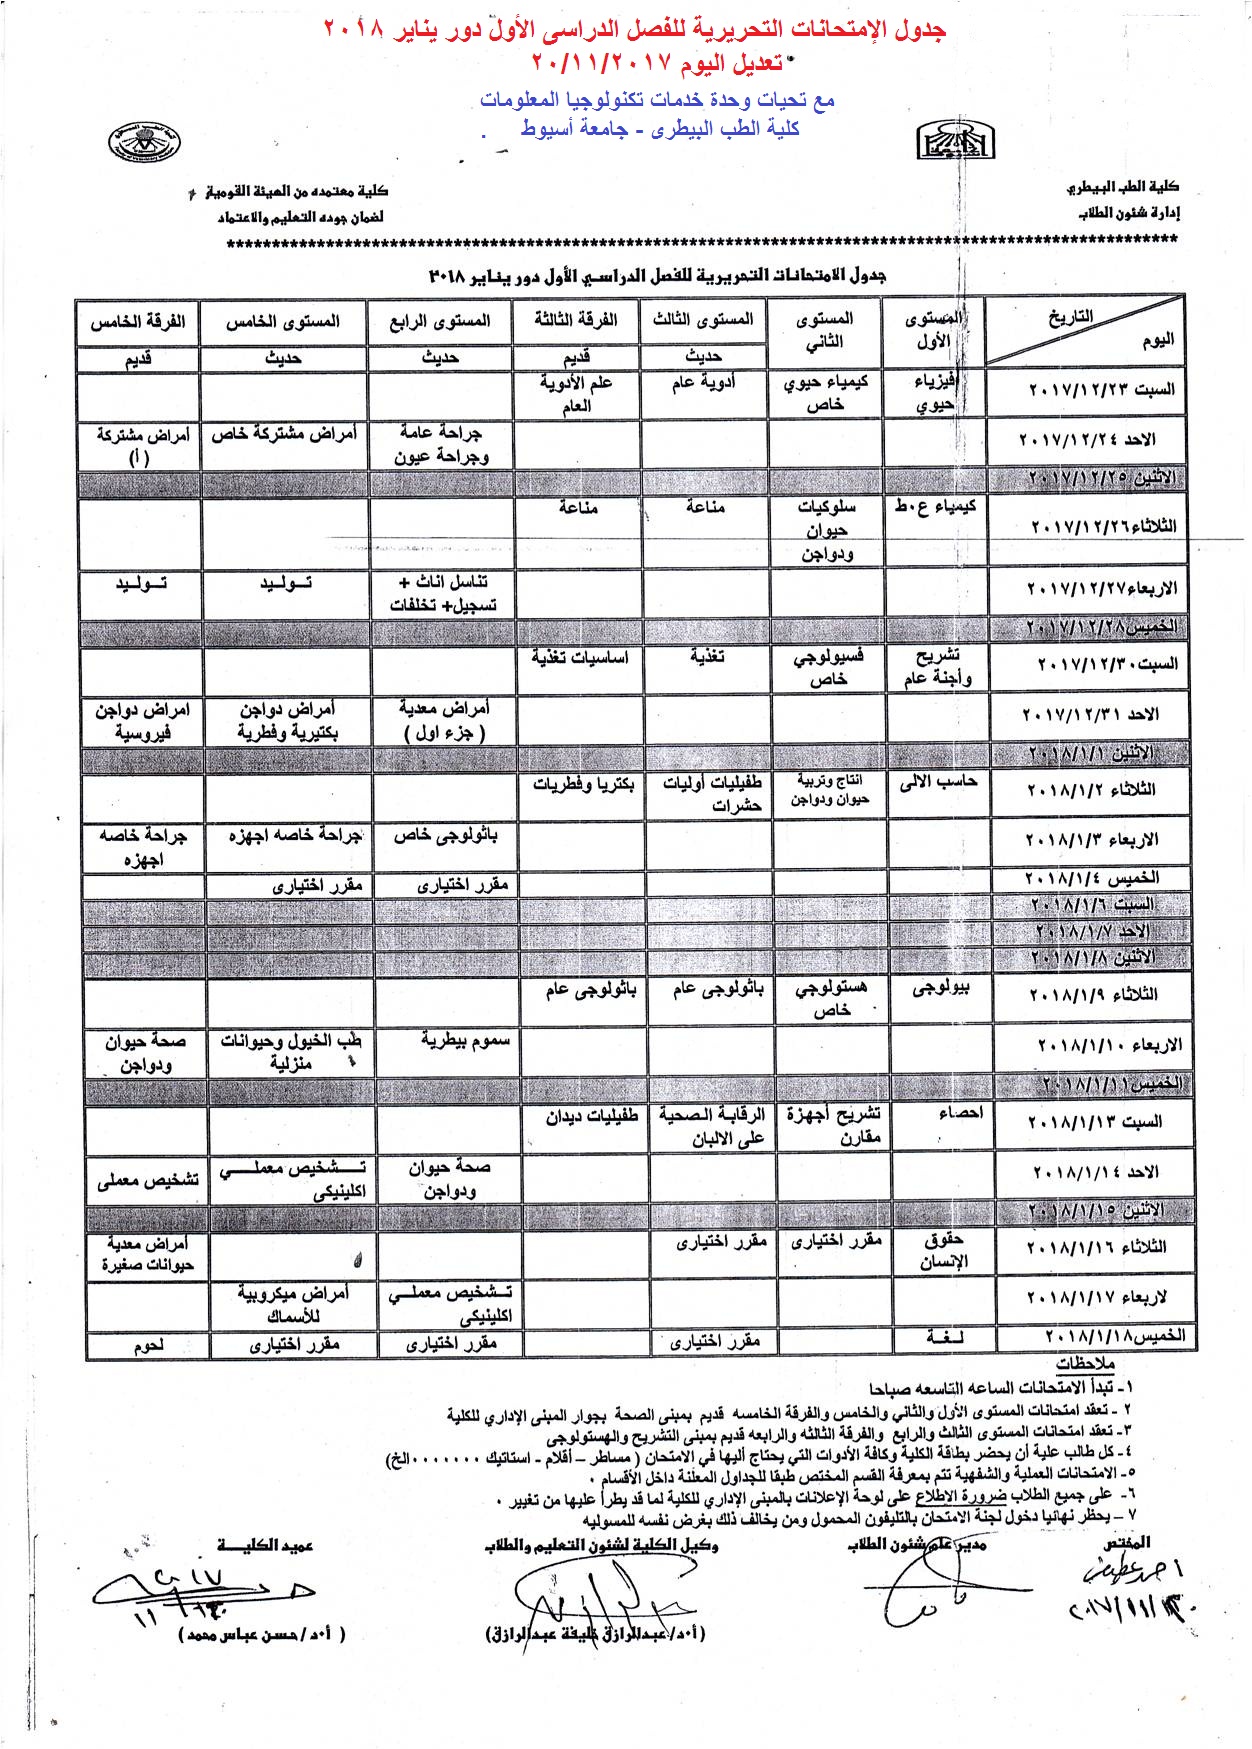 جدول الإمتحانات التحريرية للفصل الدراسى الأول دور يناير ٢٠١٨
تعديل اليوم ٢٠/١١/٢٠١٧
مع تحيات وحدة خدمات تكنولوجيا المعلومات
كلية الطب البيطرى - جامعة أسيوط .
كلية الطب البيطري
كلية معتمده من الهيئة القومية
إدارة شئون الطلاب
لضمان جوده التعليم والاعتماد
جدول الامتحانات التحريرية للفصل الدراسي الأول دور يناير ٢٠١٨
التاريخ اليوم | المستوى الأول | المستوى الثاني | المستوى الثالث | الفرقة الثالثة | المستوى الرابع | المستوى الخامس | الفرقة الخامس
حديث | قديم | حديث | حديث | قديم
السبت ٢٠١٧/١٢/٢٣ | فيزياء حيوي | كيمياء حيوي خاص | أدوية عام | علم الأدوية العام
الاحد ٢٠١٧/١٢/٢٤ | جراحة عامة وجراحة عيون | أمراض مشتركة خاص | أمراض مشتركة (أ)
الاثنين ٢٠١٧/١٢/٢٥
الثلاثاء٢٠١٧/١٢/٢٦ | كيمياء ع٠ط | سلوكيات حيوان ودواجن | مناعة | مناعة
الاربعاء٢٠١٧/١٢/٢٧ | تناسل اناث + تسجيل+ تخلفات | توليد | توليد
الخميس٢٠١٧/١٢/٢٨
السبت٢٠١٧/١٢/٣٠ | تشريح وأجنة عام | فسيولوجي خاص | تغذية | اساسيات تغذية
الاحد ٢٠١٧/١٢/٣١ | أمراض معدية ( جزء اول ) | أمراض دواجن بكتيرية وفطرية | امراض دواجن فيروسية
الاثنين ٢٠١٨/١/١
الثلاثاء ٢٠١٨/١/٢ | حاسب الالى | انتاج وتربية حيوان ودواجن | طفيليات أوليات حشرات | بكتريا وفطريات
الاربعاء ٢٠١٨/١/٣ | باثولوجى خاص | جراحة خاصه اجهزه | جراحة خاصه اجهزه
الخميس ٢٠١٨/١/٤ | مقرر اختيارى | مقرر اختيارى
السبت ٢٠١٨/١/٦
الاحد ٢٠١٨/١/٧
الاثنين ٢٠١٨/١/٨
الثلاثاء ٢٠١٨/١/٩ | بيولوجى | هستولوجي خاص | باثولوجى عام | باثولوجى عام
الاربعاء ٢٠١٨/١/١٠ | سموم بيطرية | طب الخيول وحيوانات منزلية | صحة حيوان ودواجن
الخميس٢٠١٨/١/١١
السبت ٢٠١٨/١/١٣ | احصاء | تشريح أجهزة مقارن | الرقابة الصحية على الالبان | طفيليات ديدان
الاحد ٢٠١٨/١/١٤ | صحة حيوان ودواجن | تشخيص معملي اكلينيكى | تشخيص معملى
الاثنين ٢٠١٨/١/١٥
الثلاثاء ٢٠١٨/١/١٦ | حقوق الإنسان | مقرر اختيارى | مقرر اختيارى | أمراض معدية حيوانات صغيرة
لاربعاء ٢٠١٨/١/١٧ | تشخيص معملي اكلينيكى | أمراض ميكروبية للأسماك
الخميس٢٠١٨/١/١٨ | لغة | مقرر اختيارى | مقرر اختيارى | مقرر اختيارى | لحوم
ملاحظات
١- تبدأ الامتحانات الساعه التاسعه صباحا
٢ - تعقد امتحانات المستوى الأول والثاني والخامس والفرقة الخامسه قديم بمبنى الصحة بجوار المبنى الإداري للكلية
٣- تعقد امتحانات المستوى الثالث والرابع والفرقة الثالثه والرابعه قديم بمبنى التشريح والهستولوجى
٤- كل طالب علية أن يحضر بطاقة الكلية وكافة الأدوات التي يحتاج أليها في الامتحان ( مساطر – أقلام - استاتيك ٠٠٠٠٠٠٠الخ)
٥- الامتحانات العملية والشفهية تتم بمعرفة القسم المختص طبقا للجداول المعلنة داخل الأقسام ٠
٦- على جميع الطلاب ضرورة الاطلاع على لوحة الإعلانات بالمبنى الإداري للكلية لما قد يطرأ عليها من تغيير ٠
٧ – يحظر نهائيا دخول لجنة الامتحان بالتليفون المحمول ومن يخالف ذلك يعرض نفسه للمسوليه
المختص
مدير عام شئون الطلاب
وكيل الكلية لشئون التعليم والطلاب
عميد الكلية
(أ٠د/ عبدالرازق خليفة عبدالرازق)
( أ٠د/ حسن عباس محمد )